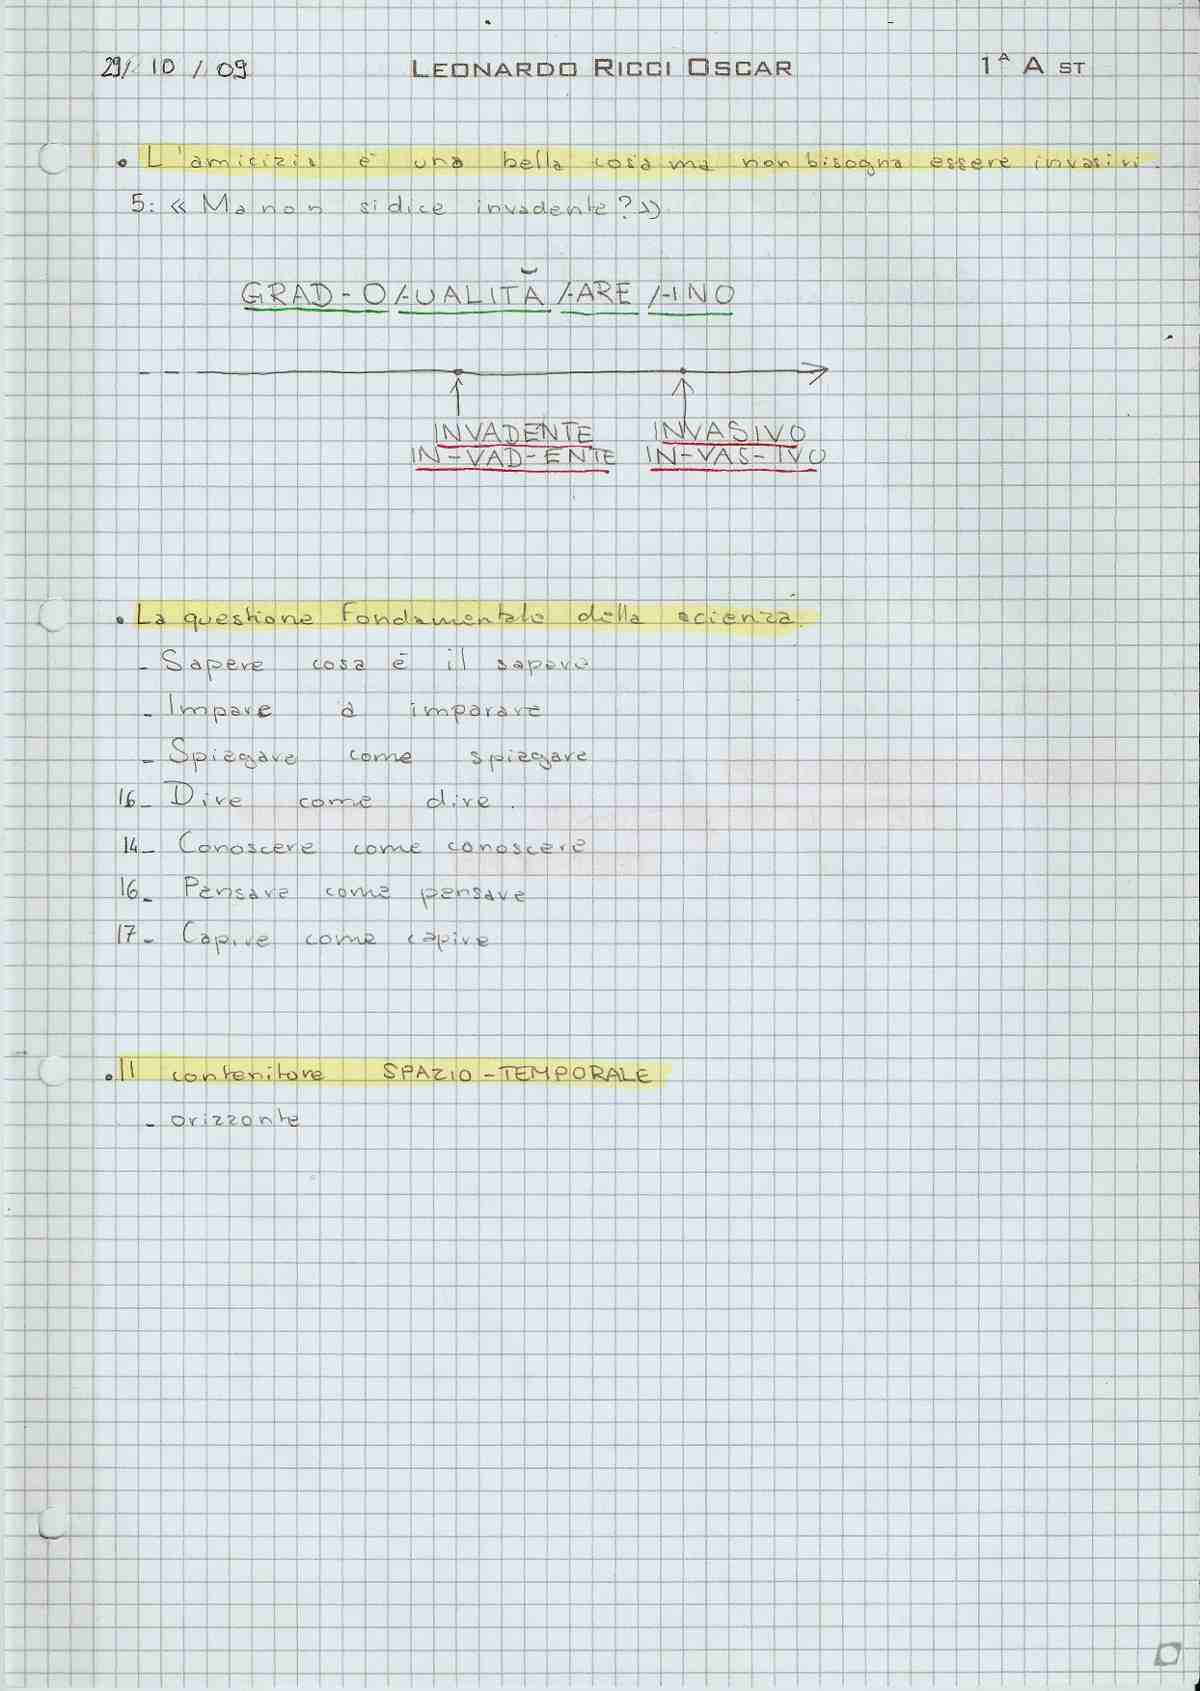 29/10/09 LEONARDO RICCI OSCAR 1ª A ST
• L'amicizia è una bella cosa ma non bisogna essere invasivi.
5: « Ma non si dice invadente? »
GRAD-O/-UALITÀ/-ARE/-INO
INVADENTE INVASIVO
IN-VAD-ENTE IN-VAS-IVO
• La questione fondamentale della scienza.
- Sapere cosa è il sapere
- Impare a imparare
- Spiegare come spiegare
16- Dire come dire.
14- Conoscere come conoscere
16- Pensare come pensare
17- Capire come capire
• Il contenitore SPAZIO-TEMPORALE
- orizzonte